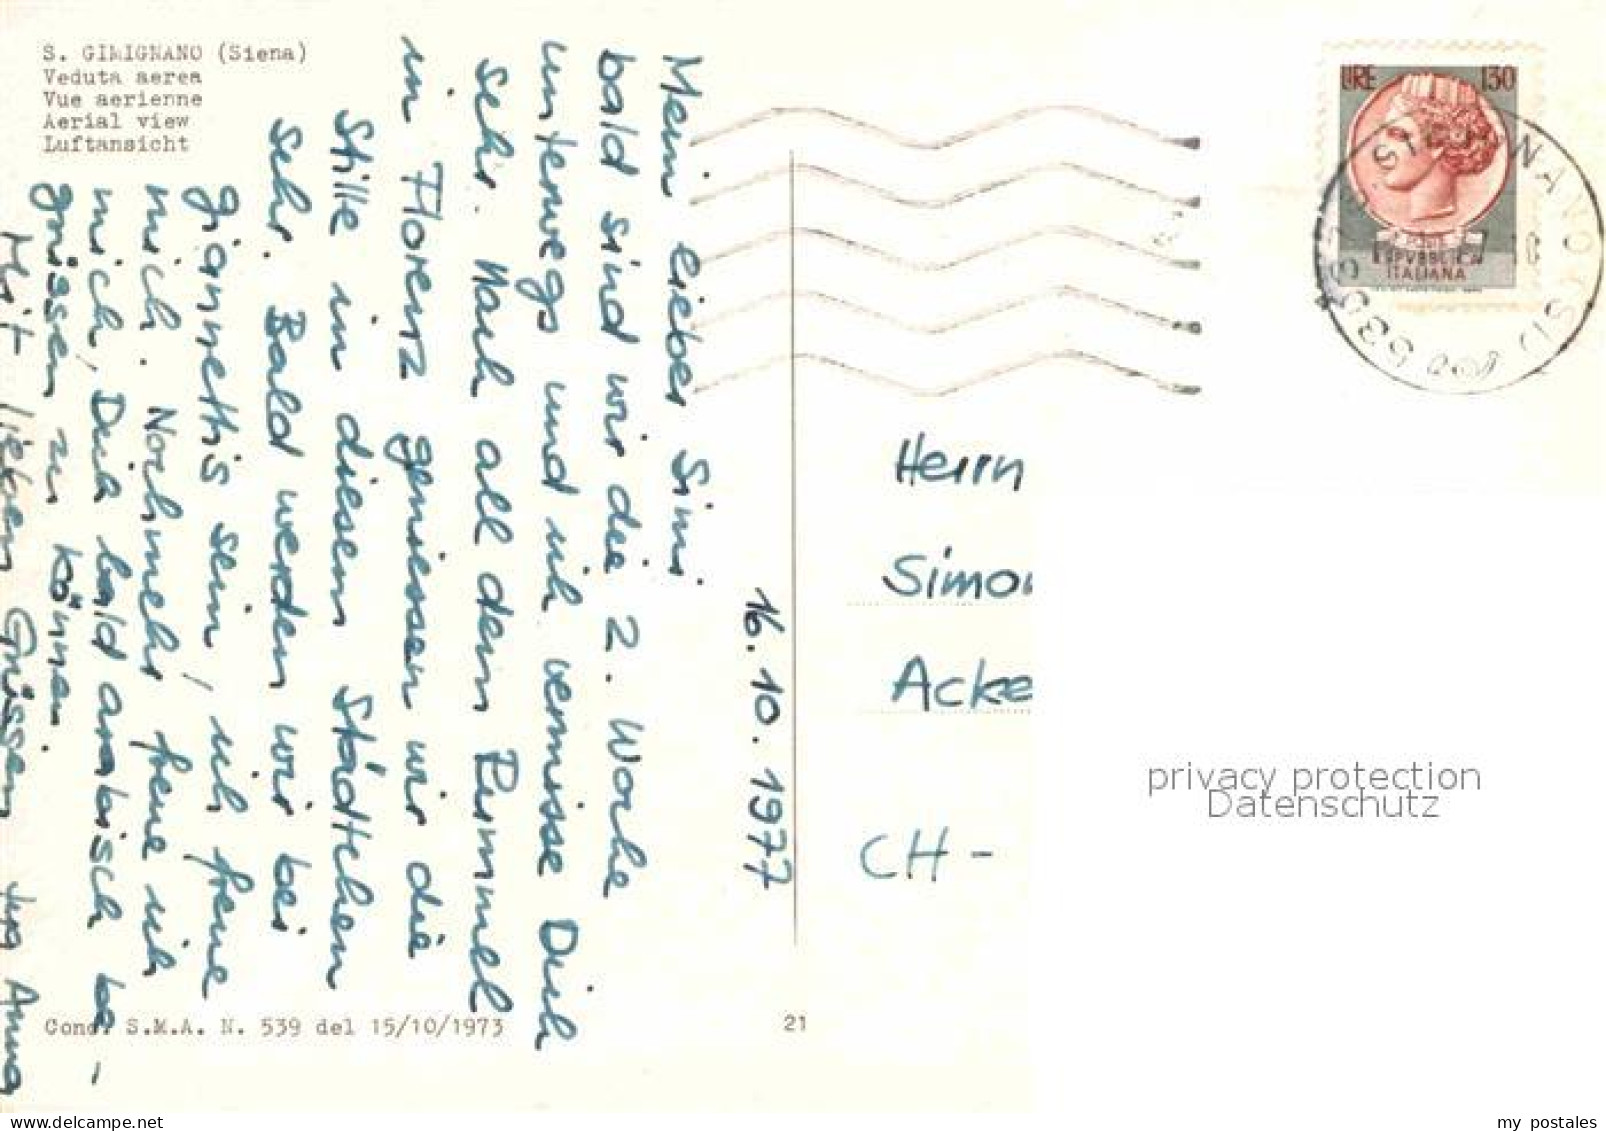 S. GIMIGNANO (Siena)
Veduta aerea
Vue aerienne
Aerial view
Luftansicht
16.10.1977
Mein lieber Simi
bald sind wir die 2. Woche
unterwegs und ich vermisse Dich
sehr. Nach all dem Rummel
in Florenz geniessen wir die
Stille in diesem Städtchen
sehr. Bald werden wir bei
Giannettis sein, ich freue
mich. Noch mehr freue ich
mich, Dich bald arabisch be-
grüssen zu können.
Mit lieben Grüssen Anna
Cond. S.M.A. N. 539 del 15/10/1973
21
LIRE 130
REPVBBLICA
ITALIANA
Herrn
Simon
Acke
CH-
privacy protection
Datenschutz
my postales